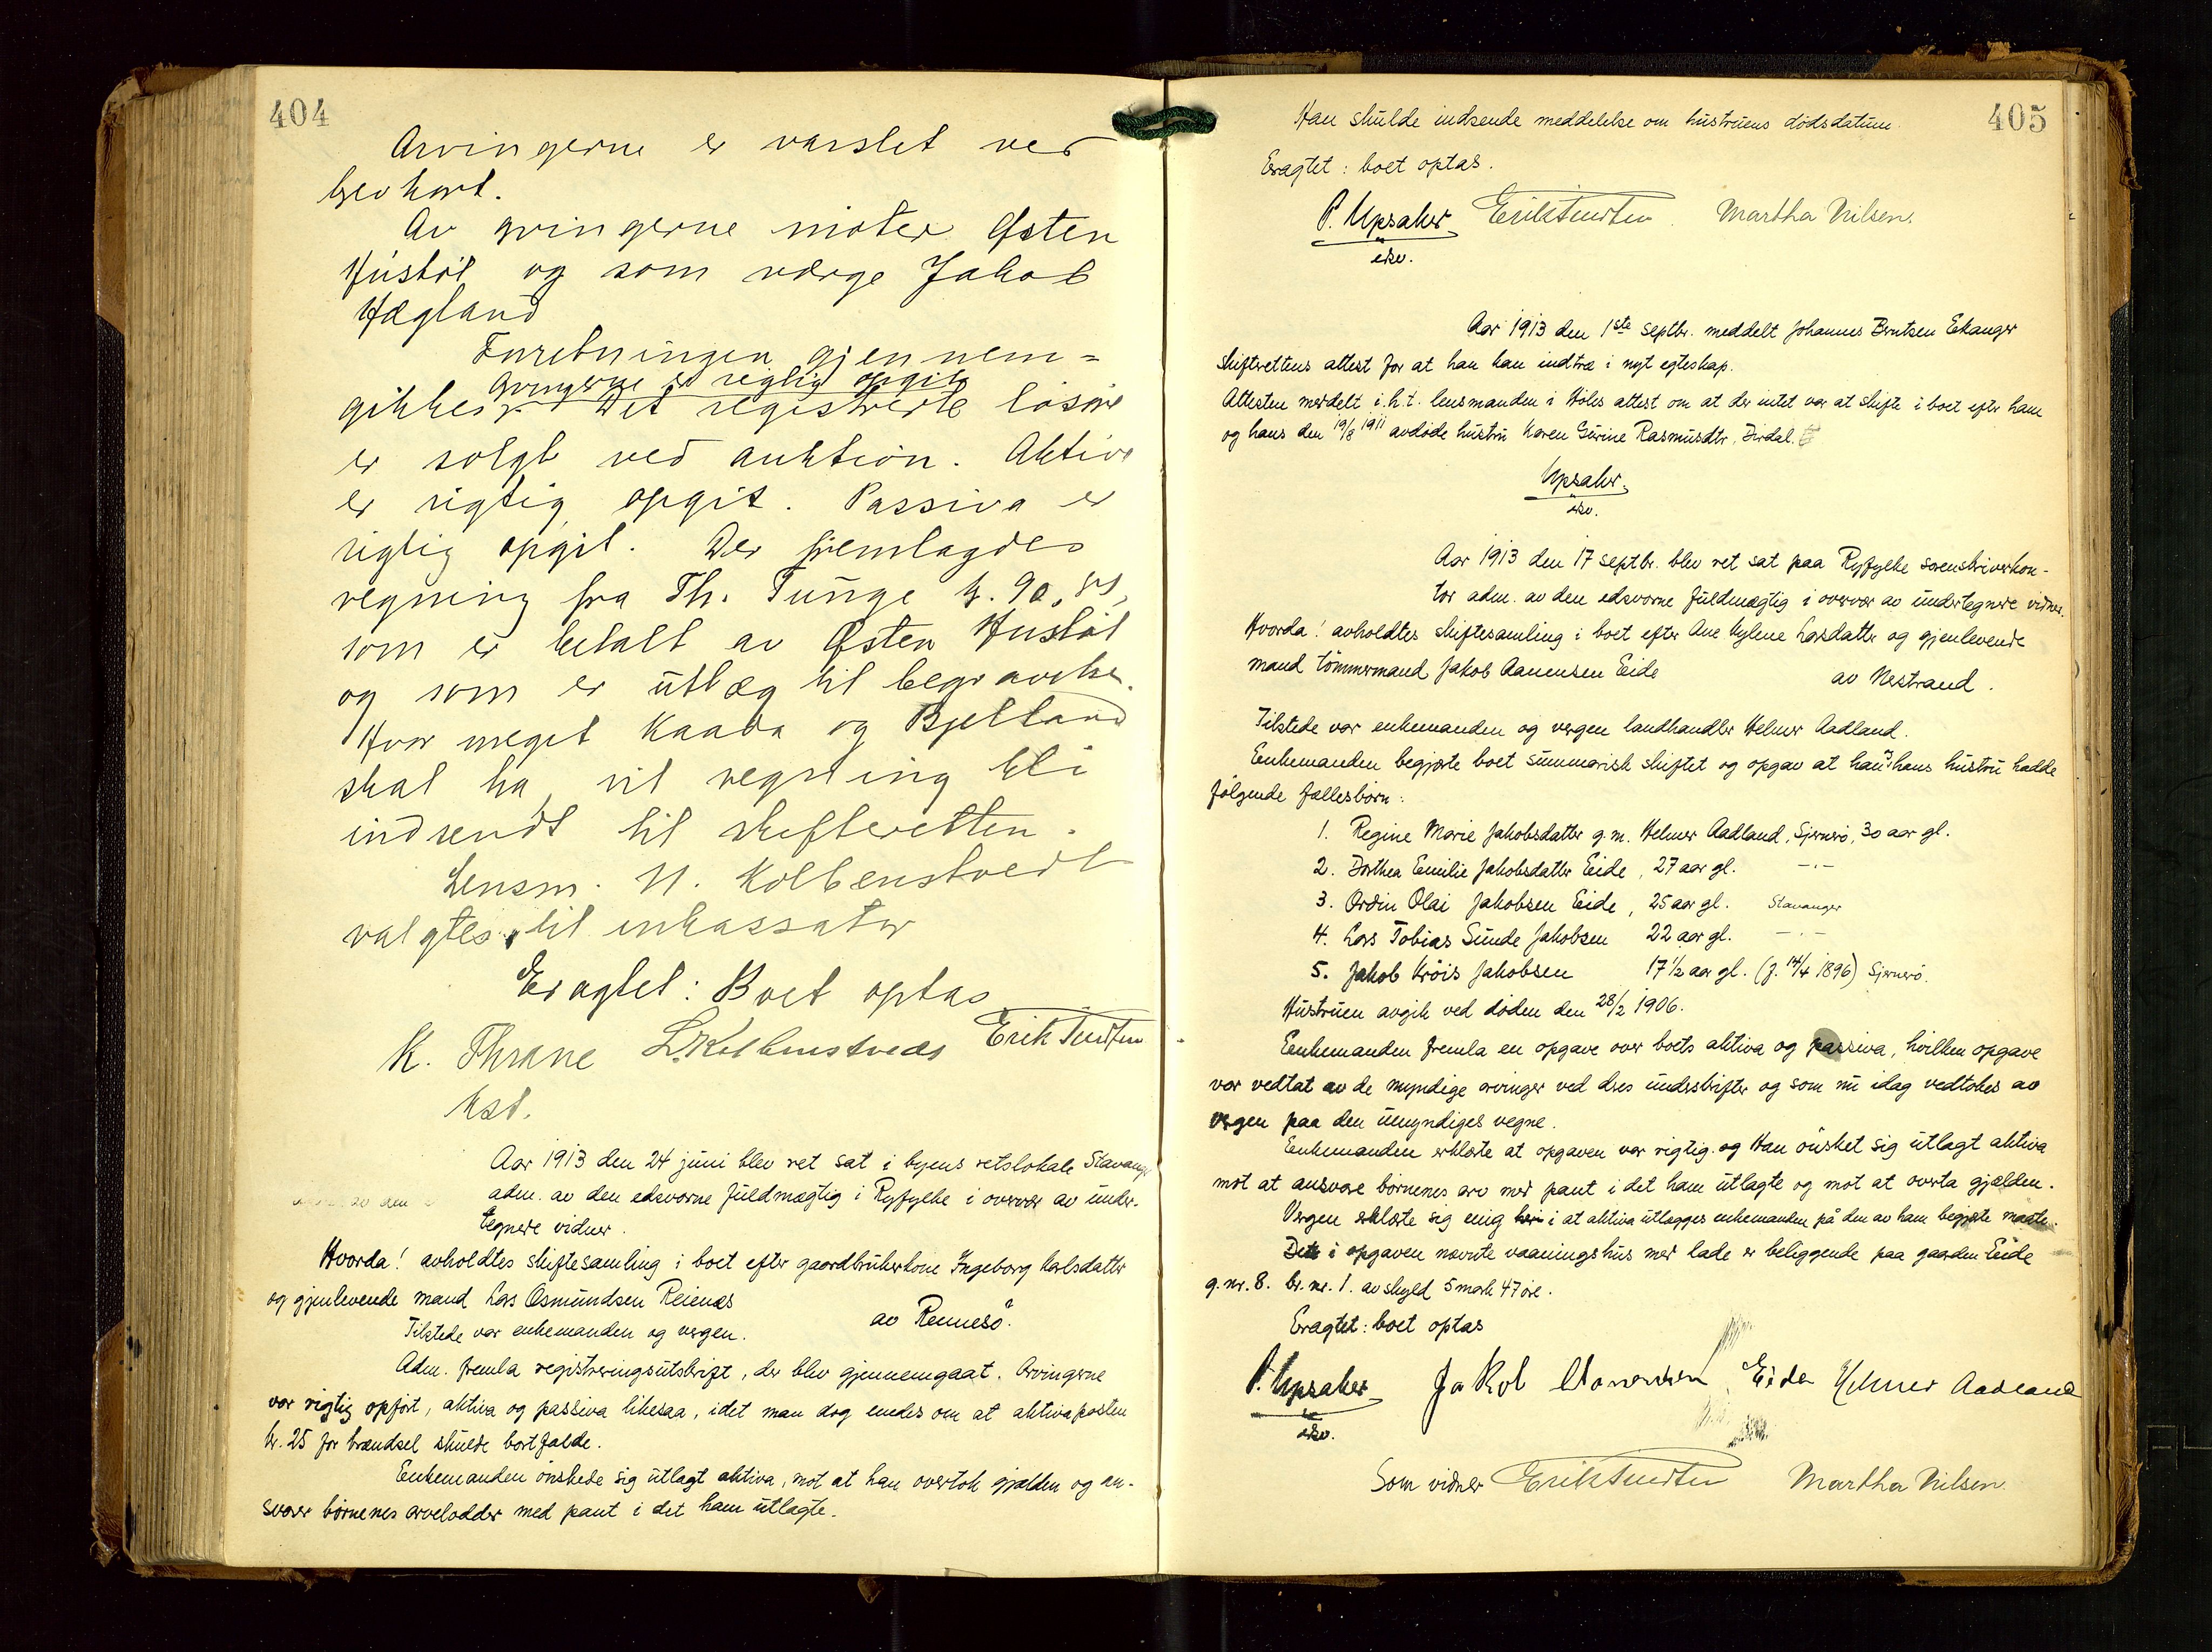 404
Arvingerne er varslet ved
brevkort.
Av arvingerne møter Østen
Hustøl og som værge Jakob
Hægland
Forretningen gjennem-
Arvingerne er rigtig opgit
gikkes. Det registrerte løsøre
er solgt ved auktion. Aktiva
er rigtig opgit. Passiva er
rigtig opgit. Der fremlagdes
regning fra Th. Tunge kr. 90,
som er betalt av Østen Hustøl
og som er utlæg til begravelse.
Hvor meget Kaada og Bjelland
skal ha, vil regning bli
indsendt til skifteretten.
Lensm. N. Kolbenstvedt
valgtes til inkassator
Eragtet: Boet optas
K. Thrane Kolbenstvedt Erik
Kst.
Aar 1913 den 24 juni blev ret sat i byens retslokale Stavanger
adm. av den edsvorne fuldmægtig i Ryfylke i overvær av under-
tegnede vidner.
Hvorda! avholdtes skiftesamling i boet efter gaardbrukerkone Ingeborg Karlsdatter
og gjenlevende mand Lars Osmundsen Reienæs
av Rennesø.
Tilstede var enkemanden og vergen.
Adm. fremla registreringsutskrift, der blev gjennemgaat. Arvingerne
var rigtig opført, aktiva og passiva likesaa, idet man dog enedes om at aktivaposten
kr. 25 for brændsel skulde bortfalde.
Enkemanden ønskede sig utlagt aktiva, mot at han overtok gjælden og an-
svarer børnenes arvelodder med pant i det ham utlagte.
405
Han skulde indsende meddelelse om hustruens dødsdatum.
Eragtet: boet optas.
P. Upsaker Erik Martha Nilsen.
edsv.
Aar 1913 den 1ste septbr. meddelt Johannes Berntsen Eikanger
skifterettens attest for at han kan indtræ i nyt egteskap.
Attesten meddelt i.h.t. lensmanden i Høles attest om at der intet var at skifte i boet efter ham
og hans den 19/8 1911 avdøde hustru Karen Gurine Rasmusdtr, Dirdal.
Upsaker
edsv.
Aar 1913 den 17 septbr. blev ret sat paa Ryfylke sorenskriverkon-
tor adm. av den edsvorne fuldmægtig i overvær av undertegnede vidner.
Hvorda! avholdtes skiftesamling i boet efter Ane Kylene Larsdatter og gjenlevende
mand tømmermand Jakob Aanensen Eide av Nestrand.
Tilstede var enkemanden og vergen landhandler Helmer Aadland.
Enkemanden begjærte boet summarisk skiftet og opgav at han og hans hustru hadde
følgende fællesbørn:
1. Regine Marie Jakobsdatter g.m. Helmer Aadland, Sjernerø, 30 aar gl.
2. Dorthea Emilie Jakobsdatter Eide, 27 aar gl. —"—
3. Ordin Olai Jakobsen Eide, 25 aar gl. Stavanger
4. Lars Tobias Sunde Jakobsen 22 aar gl. —"—
5. Jakob Krøis Jakobsen 17 1/2 aar gl. (f. 14/4 1896) Sjernerø.
Hustruen avgik ved døden den 28/2 1906.
Enkemanden fremla en opgave over boets aktiva og passiva, hvilken opgave
var vedtat av de myndige arvinger ved deres underskrifter og som nu idag vedtokes av
vergen paa den umyndiges vegne.
Enkemanden erklærte at opgaven var rigtig og Han ønsket sig utlagt aktiva
mot at ansvare børnenes arv med pant i det ham utlagte og mot at overta gjælden.
Vergen erklærte sig enig i at aktiva utlægges enkemanden på den av ham begjærte maate.
Det i opgaven nævnte vaaningshus med lade er beliggende paa gaarden Eide
g.nr. 8. br.nr. 1. av skyld 5 mark 47 øre.
Eragtet: boet optas
P. Upsaker Jakob Aanensen Eide Helmer Aadland
edsv.
Som vidner Erik Martha Nilsen.